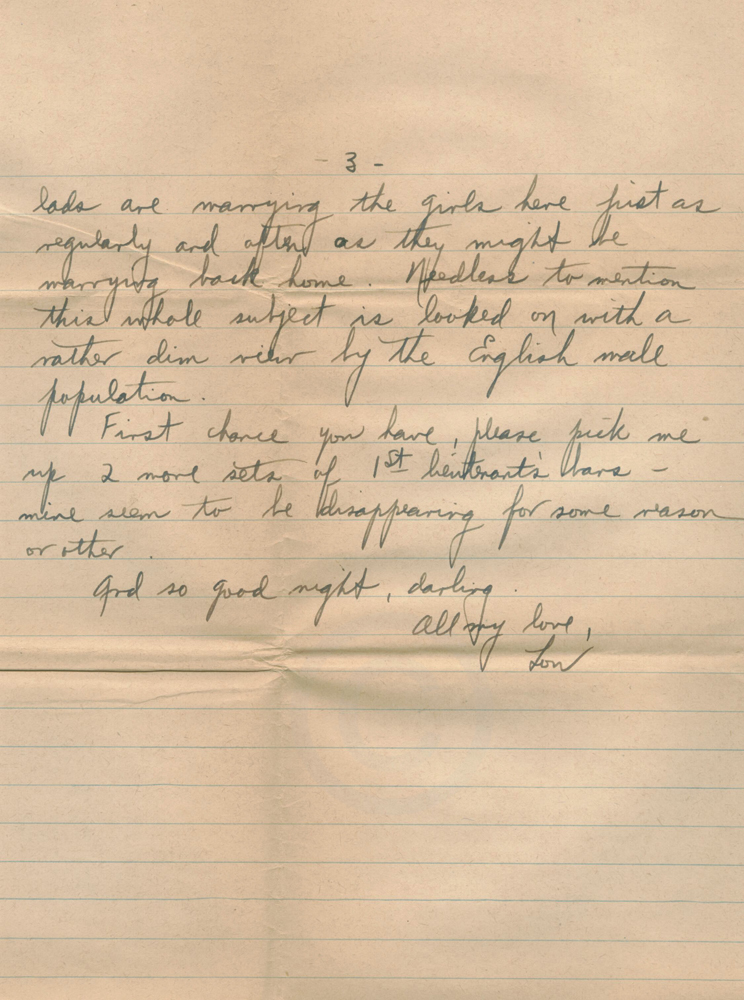 - 3 -
lads are marrying the girls here just as
regularly and often as they might be
marrying back home. Needless to mention
this whole subject is looked on with a
rather dim view by the English male
population.
First chance you have, please pick me
up 2 more sets of 1st lieutenant's bars -
mine seem to be disappearing for some reason
or other.
And so good night, darling.
All my love,
Lou